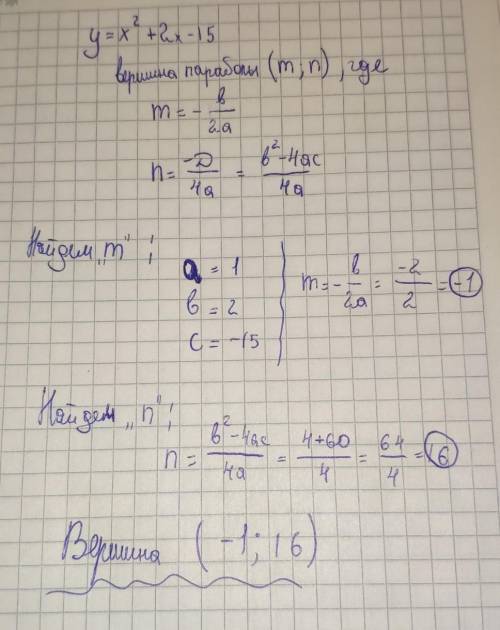 y = x² + 2x - 15
вершина параболы (m; n), где
m = - в/2a
n = -D/4a = в² - 4ac/4a
Найдем „m" ;
a = 1
в = 2
c = -15
m = - в/2a = -2/2 = -1
Найдем „n" ;
n = в² - 4ac/4a = 4+60/4 = 64/4 = 16
Вершина (-1; 16)